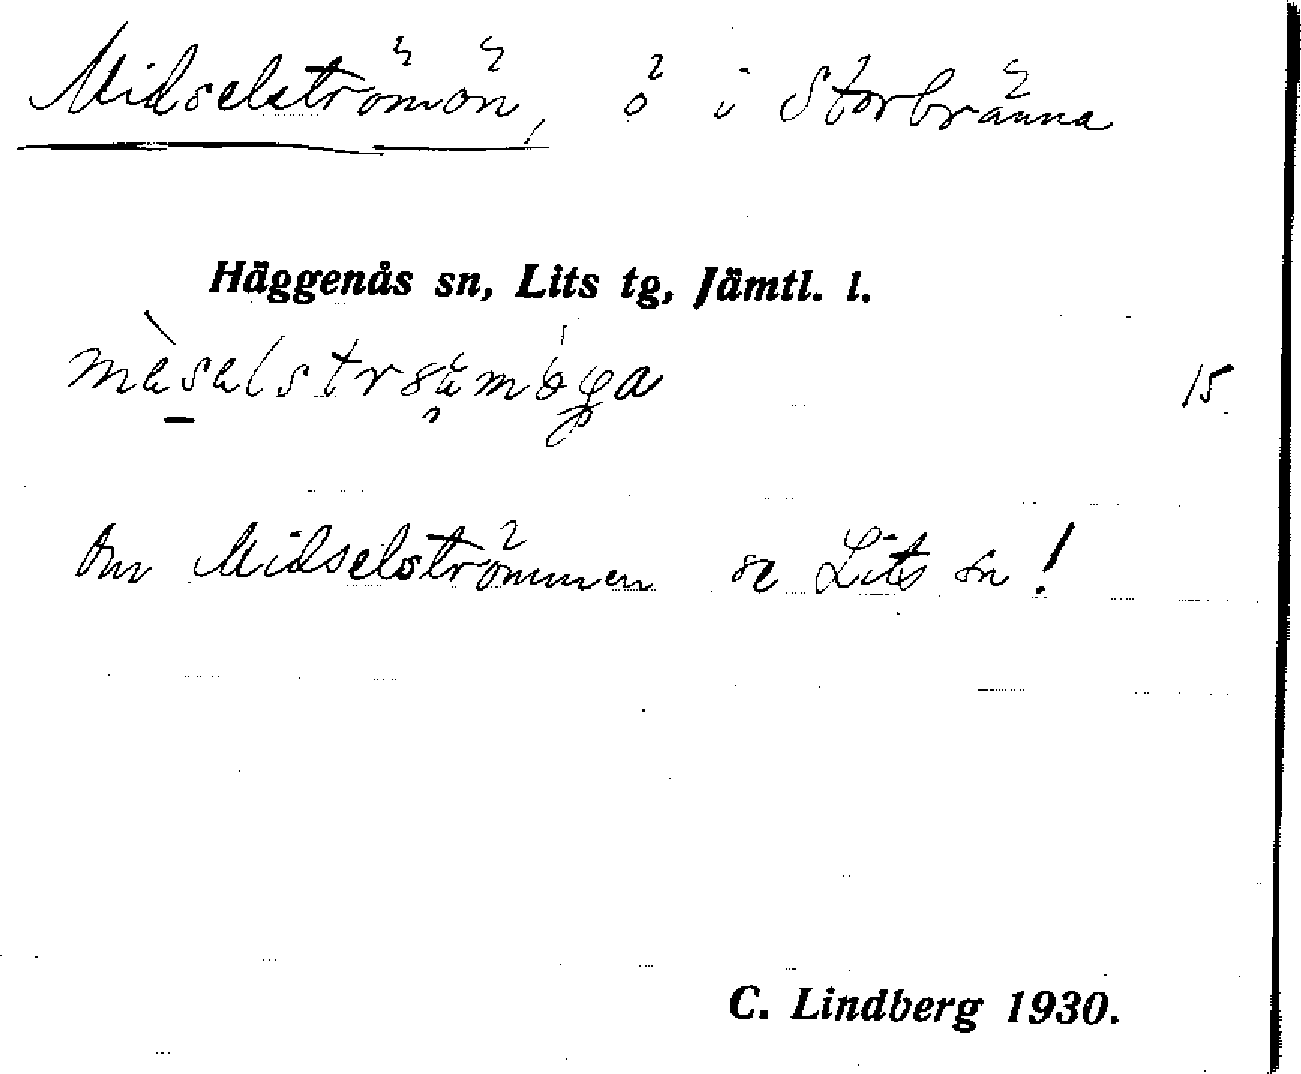 Midselströmön, ö i Storbränna
Häggenås sn, Lits tg, Jämtl. l.
15.
Om Midselströmmen se Lits sn!
C. Lindberg 1930.